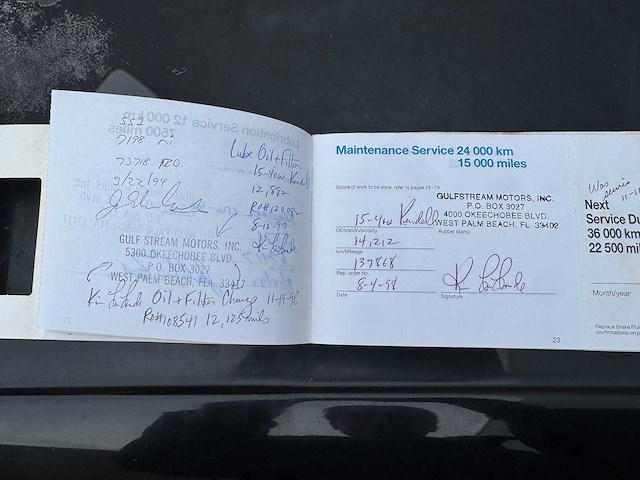 551
7198 mi
73718 RO.
3/22/94
GULF STREAM MOTORS, INC.
5300 OKEECHOBEE BLVD.
P.O. BOX 3027
WEST PALM BEACH, FLA 33417
Lube Oil + Filter
15-40w Kendall
12,882
RO#120082
8-12-97
Oil + Filter Change 11-19-96
RO#108541 12,125 miles
Lubrication Service 12 000 km
7500 miles
Maintenance Service 24 000 km
15 000 miles
Scope of work to be done, refer to pages 78-79
GULFSTREAM MOTORS, INC.
P.O. BOX 3027
4000 OKEECHOBEE BLVD.
WEST PALM BEACH, FL 33402
15-40w Kendall
Oil brand/viscosity
Rubber stamp
14,212
km/Mileage
137868
Rep. order No.
8-4-98
Date
Signature
23
Next
Service Du
36 000 km
22 500 mil
Month/year
Replace Brake Flui
confirmations on p